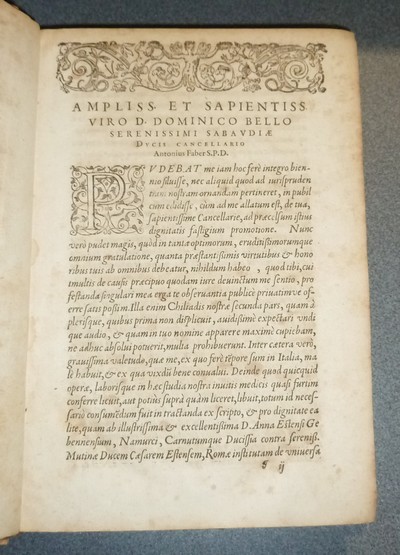 AMPLISS. ET SAPIENTISS
VIRO D. DOMINICO BELLO
SERENISSIMI SABAVDIÆ
DVCIS CANCELLARIO
Antonius Faber S.P.D.
PVDEBAT me iam hoc ferè integro bien
nio siluisse, nec aliquid quod ad iurispruden
tiam nostram ornandam pertineret, in publi
cùm edidisse, cùm ad me allatum est, de tua,
sapientissime Cancellarie, ad præcelsum istius
dignitatis fastigium promotione. Nunc
verò pudet magis, quòd in tanta optimorum, eruditissimorumque
omnium gratulatione, quanta præstantißimis virtutibus & hono
ribus tuis ab omnibus debeatur, nihildum habeo, quod tibi, cui
multis de causis præcipuo quodam iure deuinctum me sentio, pro
festandæ singulari mea erga te obseruantia publicè priuatimve of
ferre satis possim. Illa enim Chiliadis nostræ secunda pars, quam à
plerisque, quibus prima non displicuit, auidißimè expectari vndi
que audio, & quam in tuo nomine apparere maximè cupiebam,
ne adhuc absolui potuerit, multa prohibuerunt. Inter cætera verò,
grauissima valetudo, quæ me, ex quo ferè tẽpore sum in Italia, ma
lè habuit, & ex qua vixdũ bene conualui. Deinde quod quicquid
operæ, laborisque in hæc studia nostra inuitis medicis quasi furtim
conferre licuit, aut potiùs suprà quàm liceret, libuit, totum id neces
sariò consumẽdum fuit in tractanda ex scripto, & pro dignitate ca
lite, quam ab illustrissima & excellentissima D. Anna Estensi Ge
bennensium, Namurci, Carnutumque Ducissia contra sereniss.
Mutinæ Ducem Cæsarem Estensem, Romæ institutam de vniuersa
ij